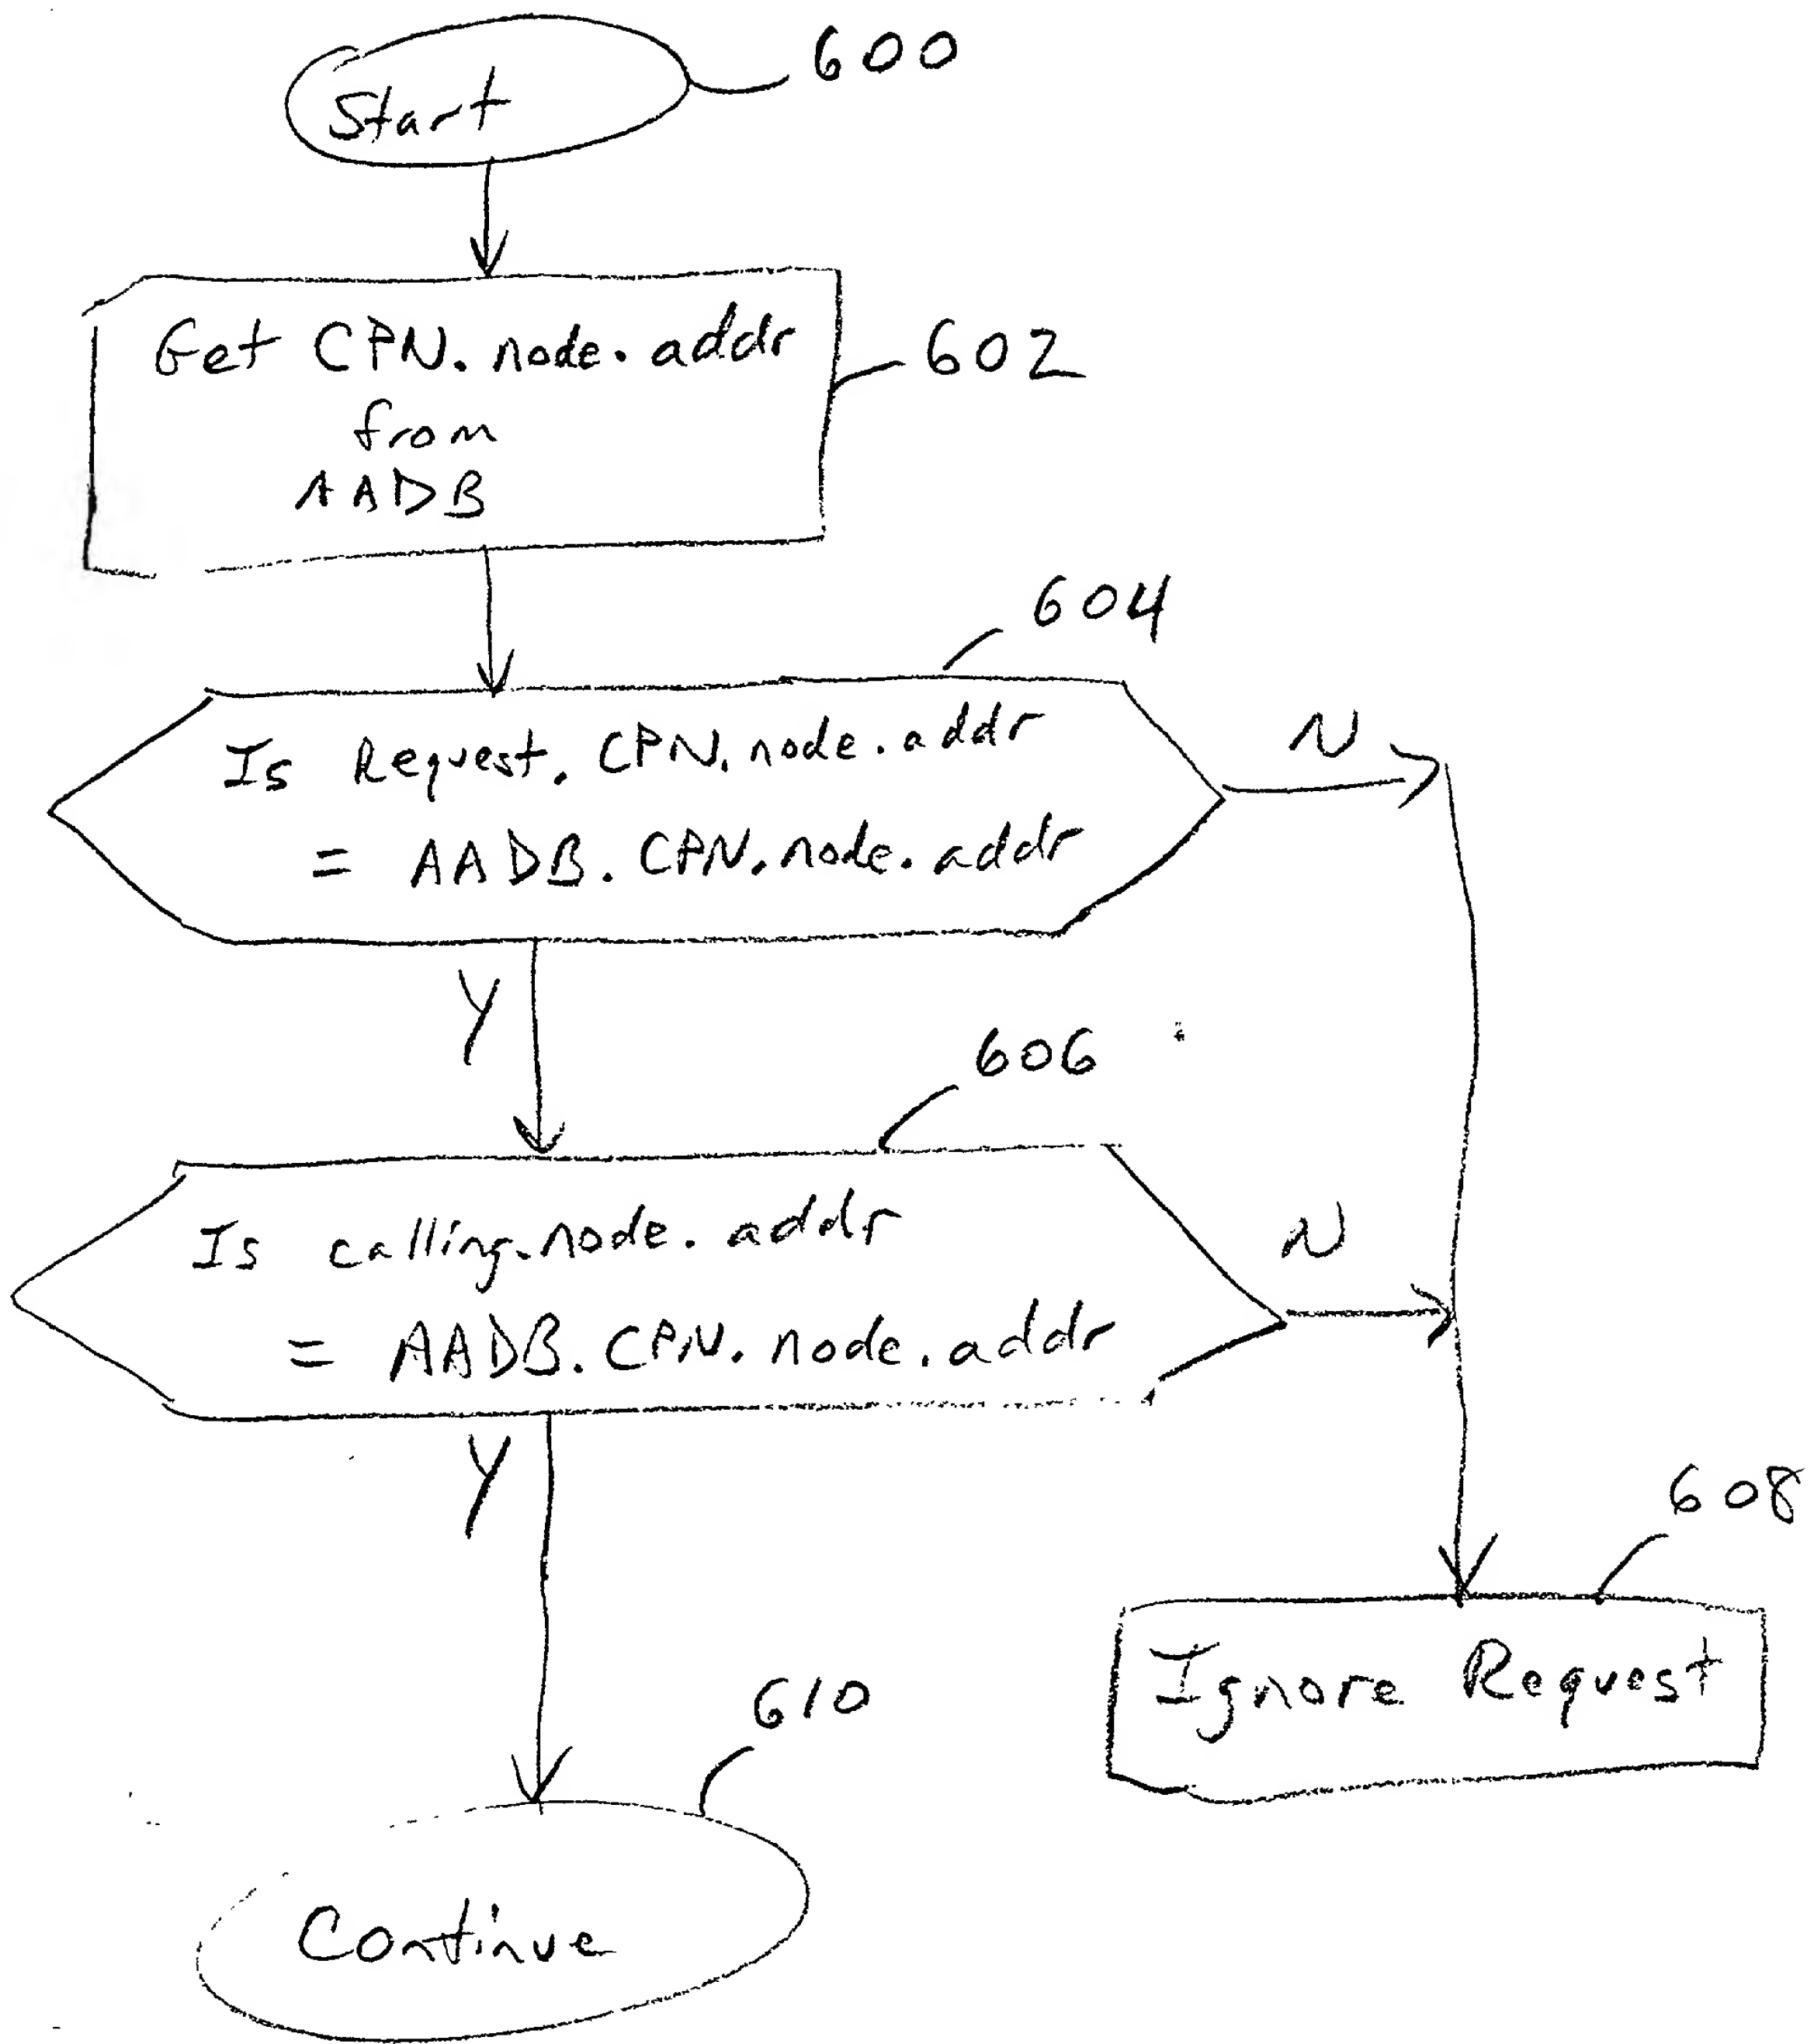 Start
600
Get CPN.node.addr
from
AADB
602
604
Is Request.CPN.node.addr
= AADB.CPN.node.addr
N
Y
606
Is calling.node.addr
= AADB.CPN.node.addr
N
Y
608
Ignore Request
610
Continue